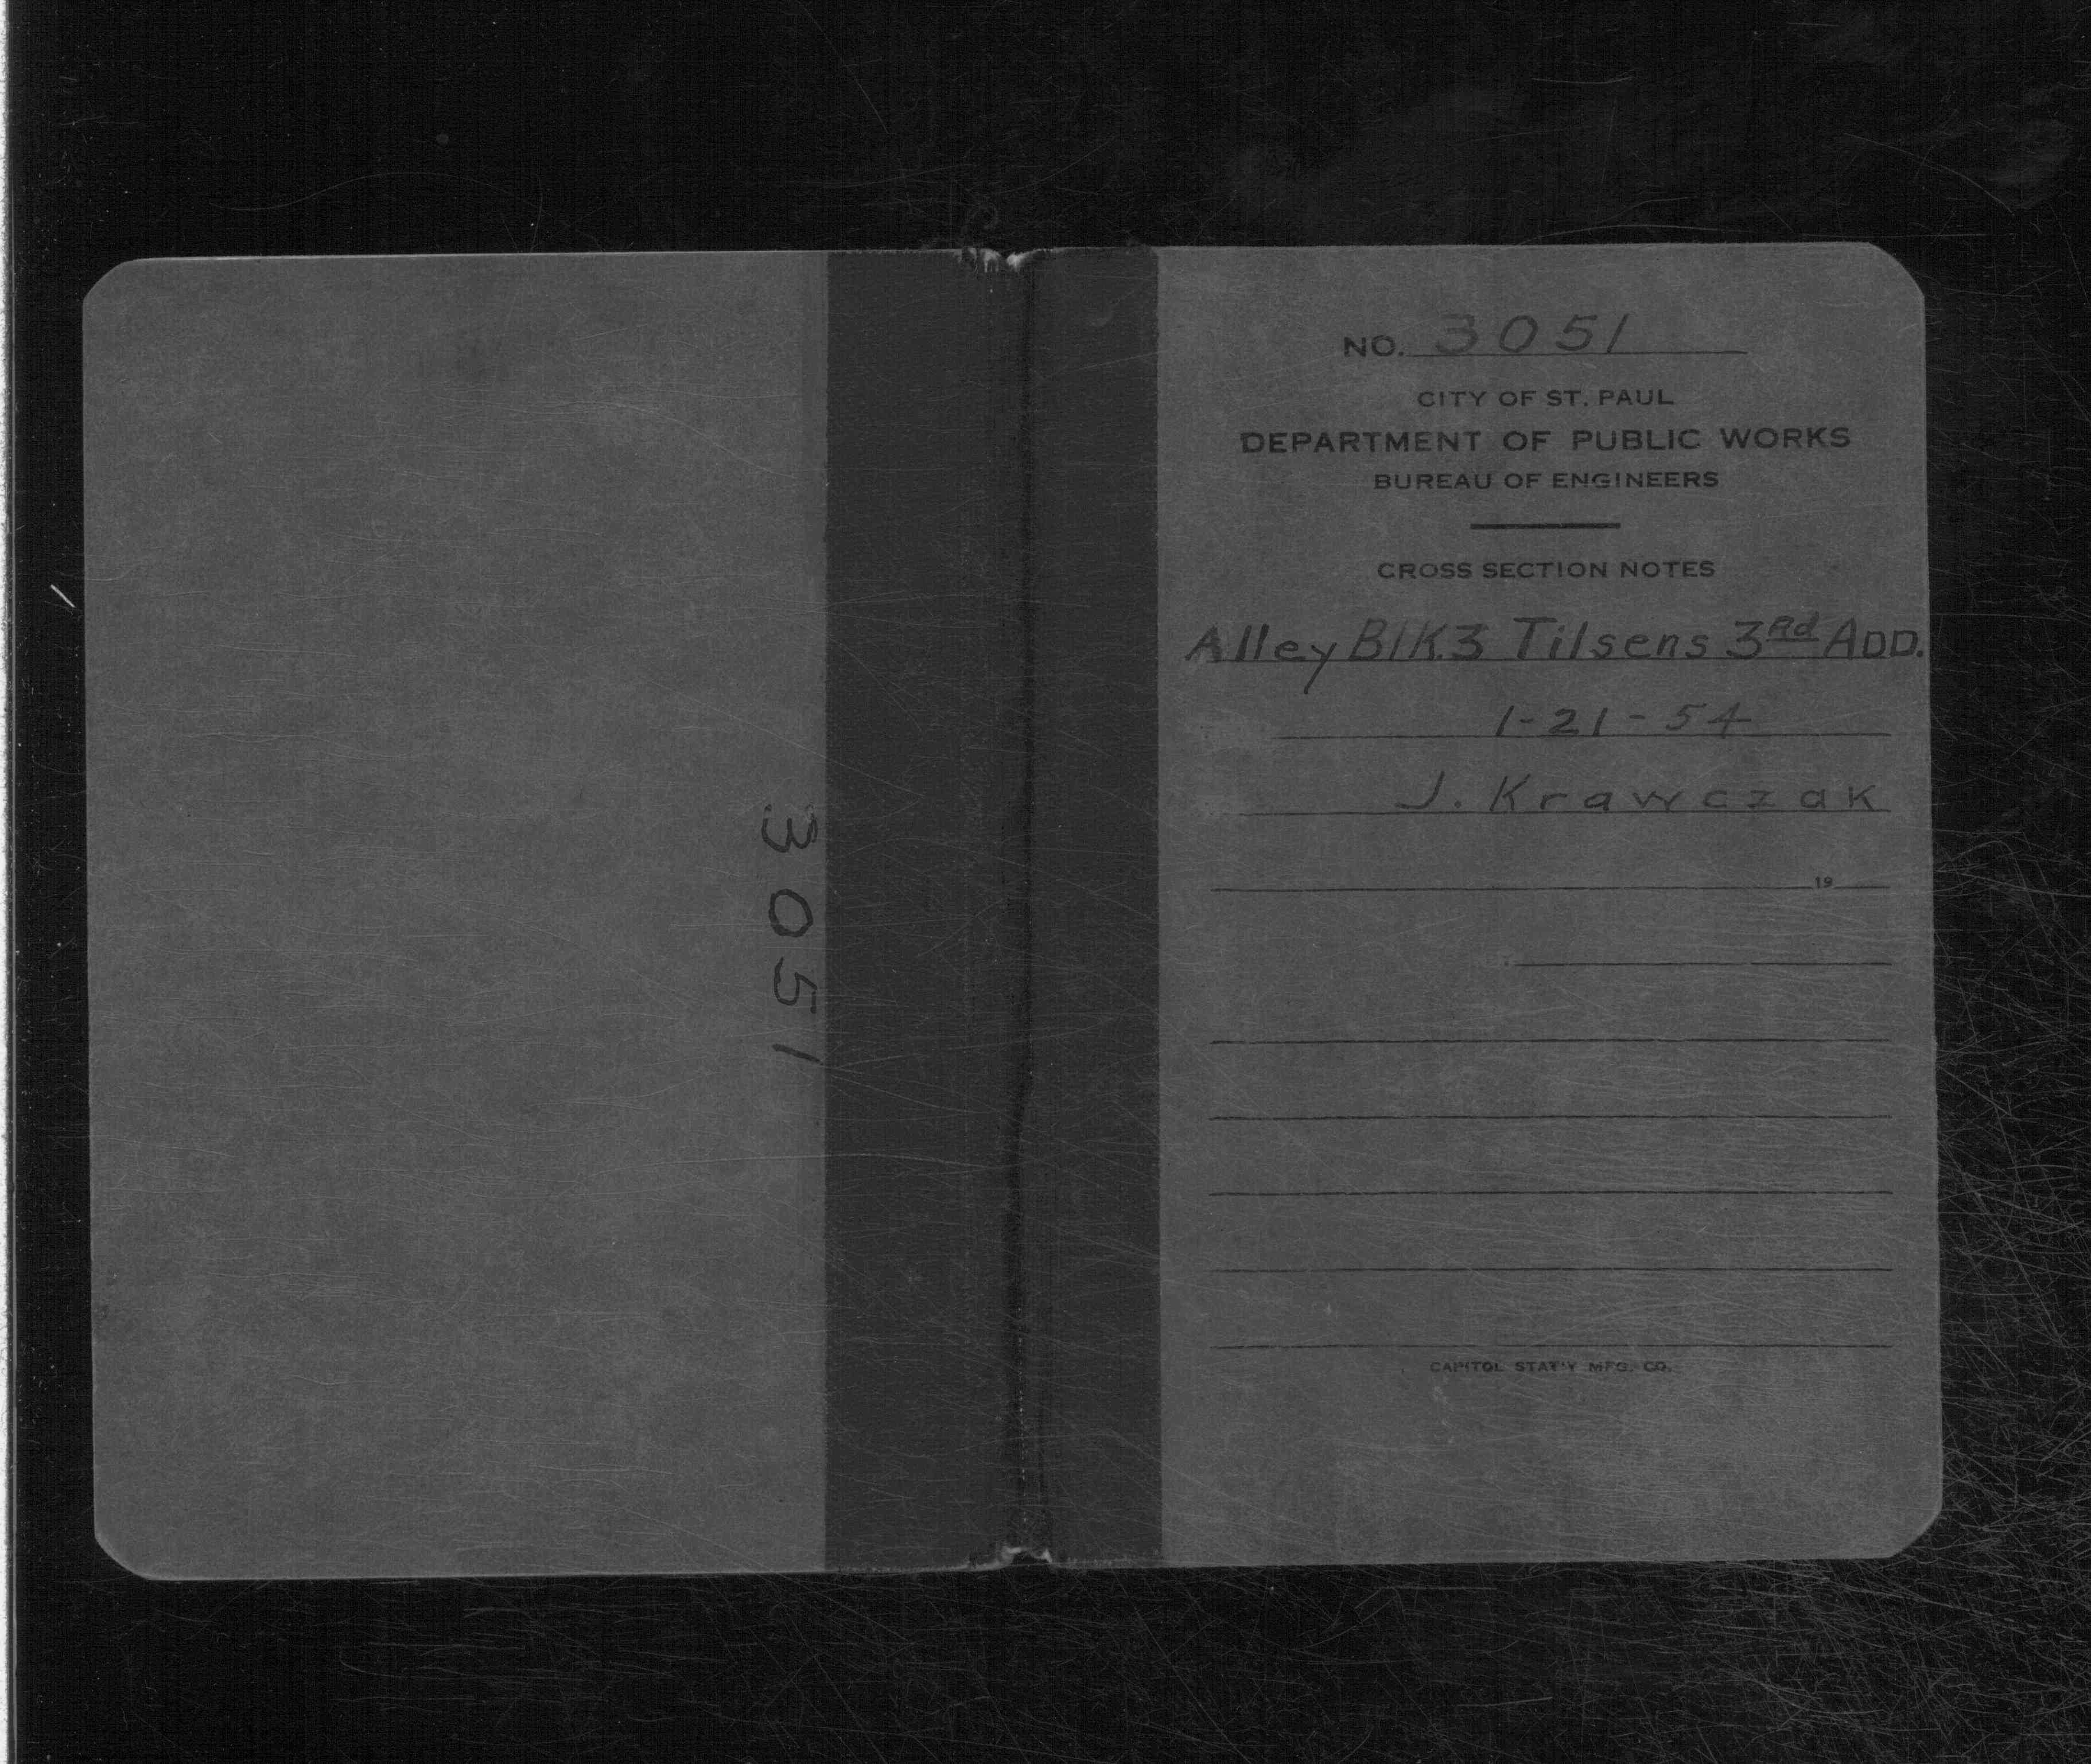 3051
NO. 3051
CITY OF ST. PAUL
DEPARTMENT OF PUBLIC WORKS
BUREAU OF ENGINEERS
CROSS SECTION NOTES
Alley Blk.3 Tilsens 3rd ADD.
1-21-54
J. Krawczak
19
CAPITOL STAT'Y MFG. CO.